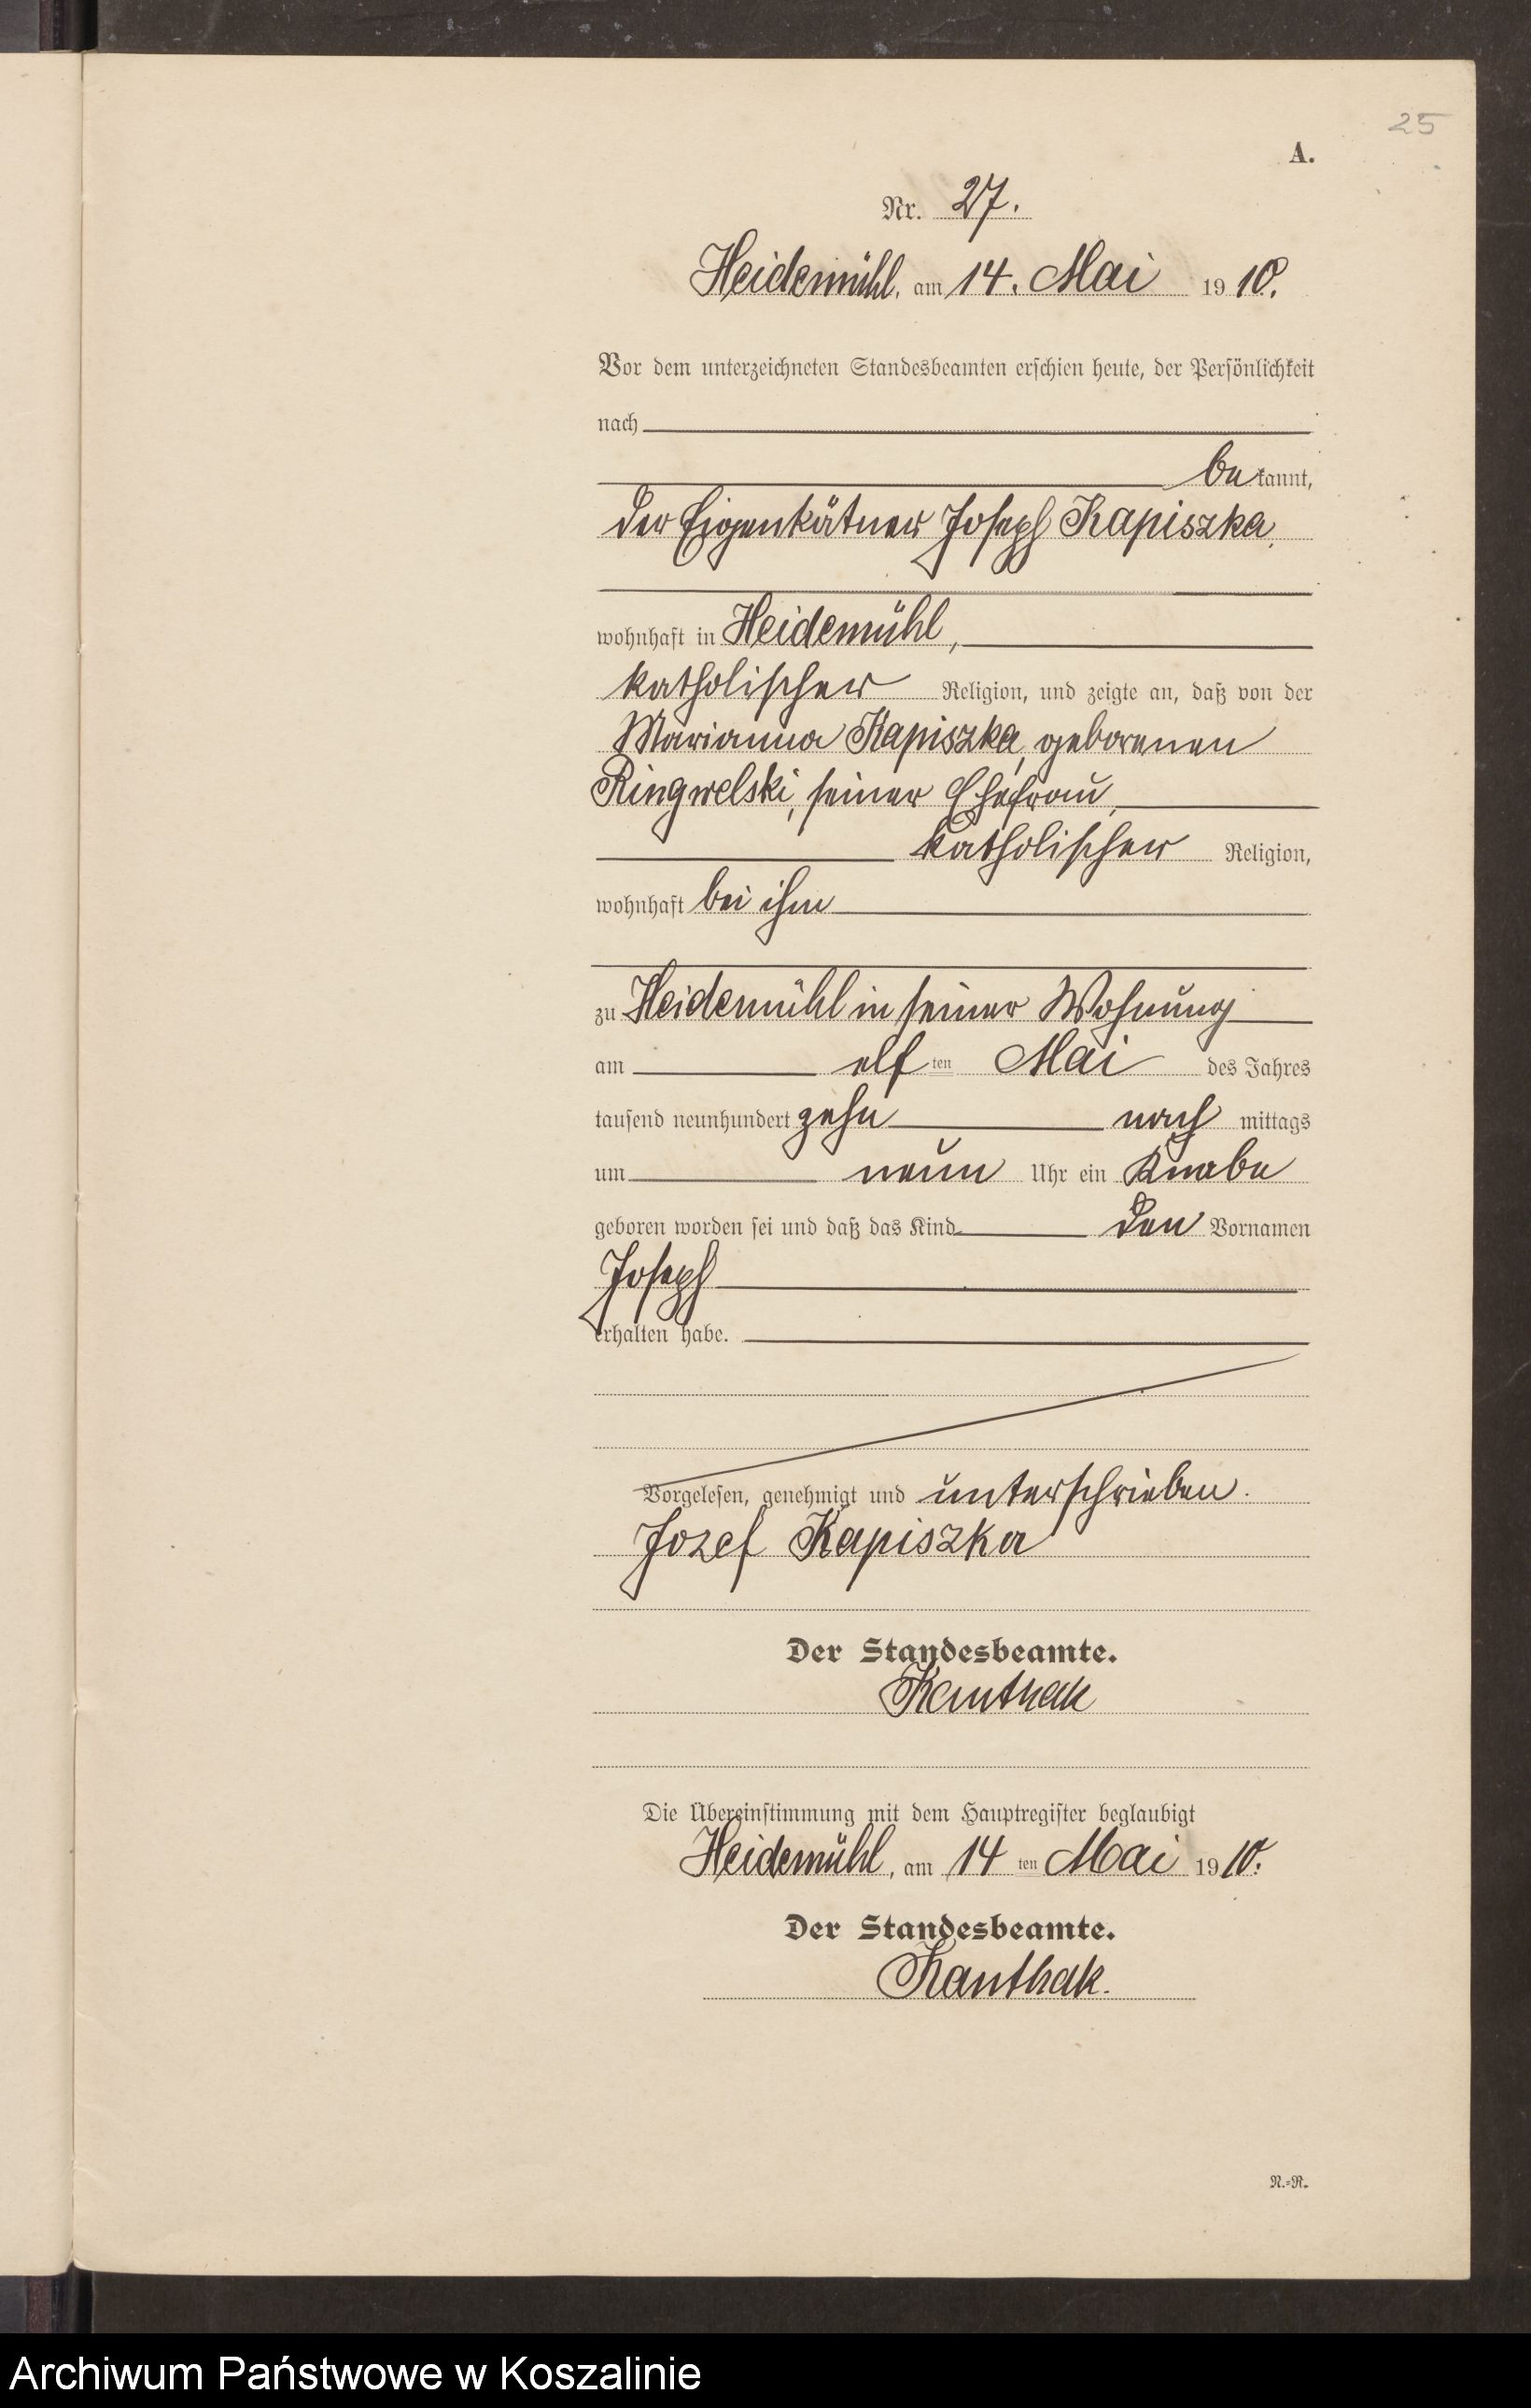 25
A.
Nr. 27.
Heidemühl, am 14. Mai 1910.
Vor dem unterzeichneten Standesbeamten erschien heute, der Persönlichkeit
nach
bekannt,
der Eigenkätner Joseph Kapiszka,
wohnhaft in Heidemühl,
katholischer Religion, und zeigte an, daß von der
Marianna Kapiszka, geborenen
Ringwelski, seiner Ehefrau,
katholischer Religion,
wohnhaft bei ihm
zu Heidemühl in seiner Wohnung
am elften Mai des Jahres
tausend neunhundert zehn nachmittags
um neun Uhr ein Knabe
geboren worden sei und daß das Kind den Vornamen
Joseph
erhalten habe.
Vorgelesen, genehmigt und unterschrieben.
Jozef Kapiszka
Der Standesbeamte.
Kanthak
Die Übereinstimmung mit dem Hauptregister beglaubigt
Heidemühl, am 14ten Mai 1910.
Der Standesbeamte.
Kanthak.
N.=R.
Archiwum Państwowe w Koszalinie